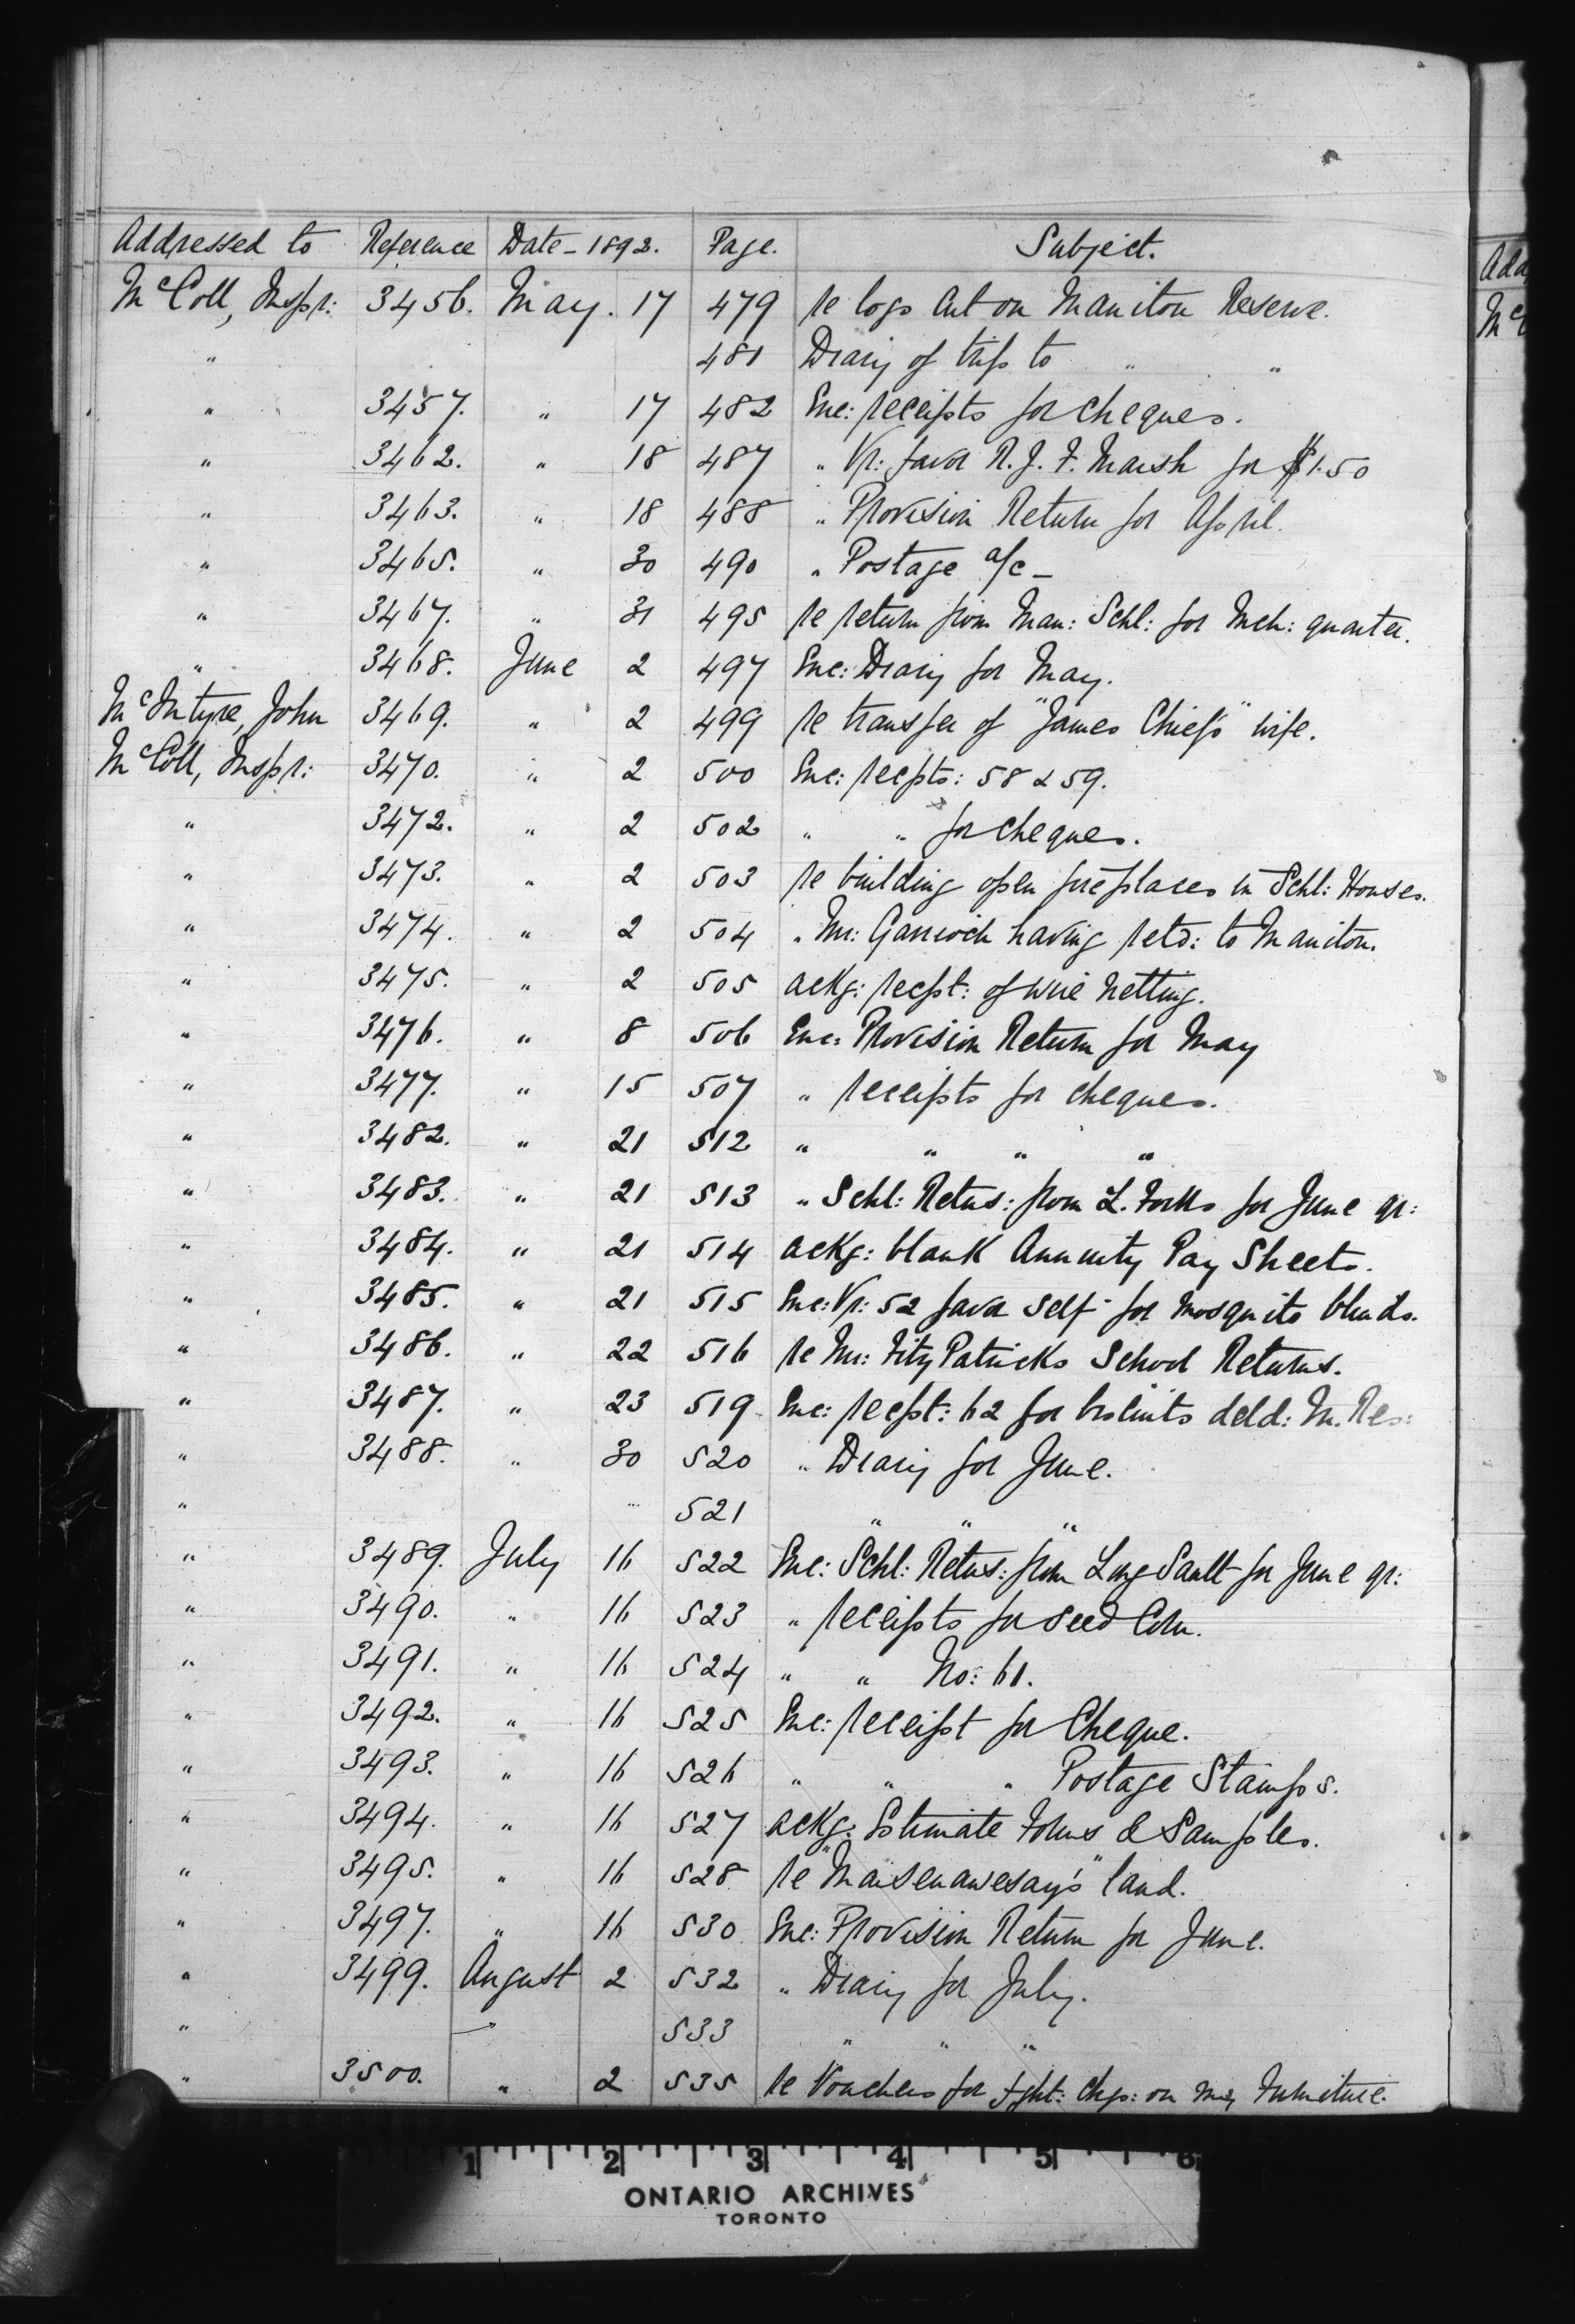 Addressed to Reference Date - 1892. Page. Subject.
McColl, Inspr: 3456. May. 17 479 re logs cut on Manitou Reserve.
" 481 Diary of trip to " "
" 3457. " 17 482 Enc: receipts for cheques.
" 3462. " 18 487 " Vr: favor R. J. F. Marsh for $1.50
" 3463. " 18 488 " Provision Return for April.
" 3465. " 30 490 " Postage a/c -
" 3467. " 31 495 re return from Man: Schl: for Mch: quarter.
" 3468. June 2 497 Enc: Diary for May.
McIntyre, John 3469. " 2 499 re transfer of "James Chief's" wife.
McColl, Inspr: 3470. " 2 500 Enc: recpts: 58 & 59.
" 3472. " 2 502 " " for cheques.
" 3473. " 2 503 re building open fireplaces in Schl: Houses.
" 3474. " 2 504 " Mr: Garrioch having retd: to Manitou.
" 3475. " 2 505 ackg: recpt: of wire netting.
" 3476. " 8 506 Enc: Provision Return for May
" 3477. " 15 507 " receipts for cheques.
" 3482. " 21 512 " " " "
" 3483. " 21 513 " Schl: Retns: from L. Forks for June qr:
" 3484. " 21 514 ackg: blank Annuity Pay Sheets.
" 3485. " 21 515 Enc: Vr: 52 favor self for mosquito blinds.
" 3486. " 22 516 re Mr: FitzPatricks School Returns.
" 3487. " 23 519 Enc: recpt: 62 for biscuits deld: M. Res:
" 3488. " 30 520 " Diary for June.
" 521 " " "
" 3489. July 16 522 Enc: Schl: Retns: from Long Sault for June qr:
" 3490. " 16 523 " receipts for seed Corn.
" 3491. " 16 524 " " No: 61.
" 3492. " 16 525 Enc: receipt for Cheque.
" 3493. " 16 526 " " " Postage Stamps.
" 3494. " 16 527 ackg: Estimate Forms & Samples.
" 3495. " 16 528 re "Maisenawesay's" land.
" 3497. " 16 530 Enc: Provision Return for June.
" 3499. August 2 532 " Diary for July.
" 533 " " "
" 3500. " 2 535 re Vouchers for fght: chgs: on my Furniture.
Add
Mc
1 2 3 4 5 6
ONTARIO ARCHIVES
TORONTO